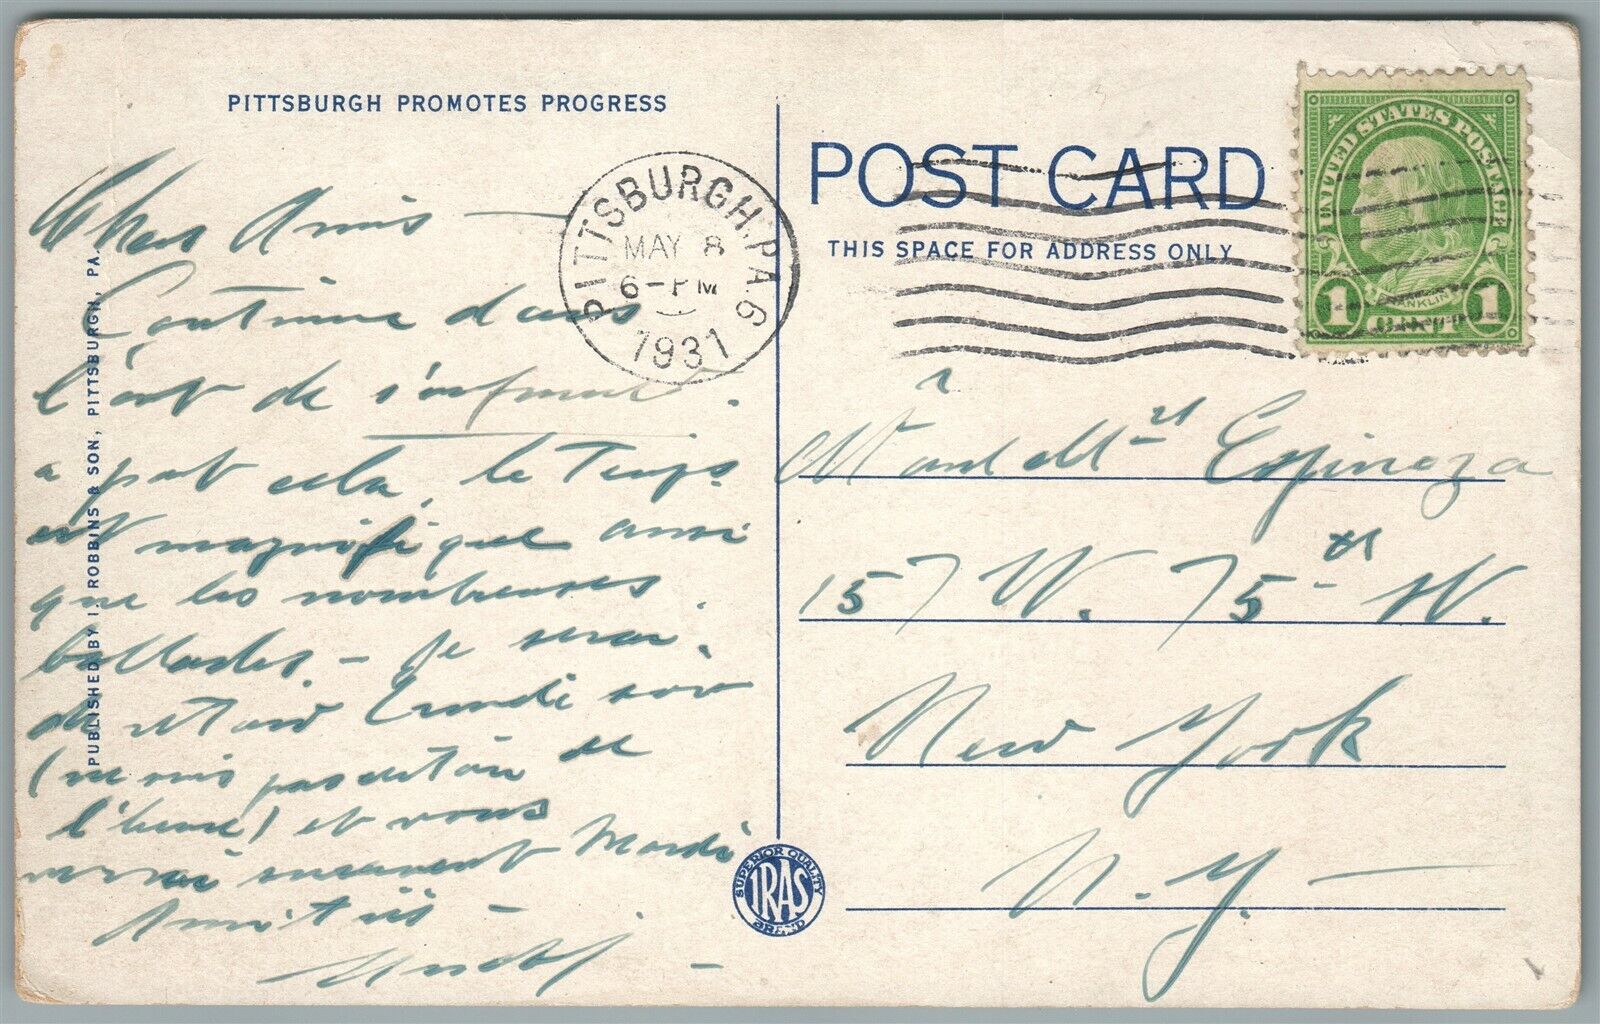 PITTSBURGH PROMOTES PROGRESS
Chers Amis —
Continue dans
l'art de s'enfuir.
a part cela, le Temps
est magnifique ainsi
que les nombreuses
ballades. — Je serai
de retour Lundi soir
(ne suis pas certain de
l'heure) et vous
verrai surement Mardi
Amitiés —
PUBLISHED BY I. ROBBINS & SON, PITTSBURGH, PA.
PITTSBURGH, PA. 6
MAY 8
6-PM
1931
POST CARD
THIS SPACE FOR ADDRESS ONLY
UNITED STATES POSTAGE
FRANKLIN
1 CENT 1
Mr and Mrs Espinoza
157 W. 75th St.
New York
N.Y. —
SUPERIOR QUALITY
IRAS
BRAND